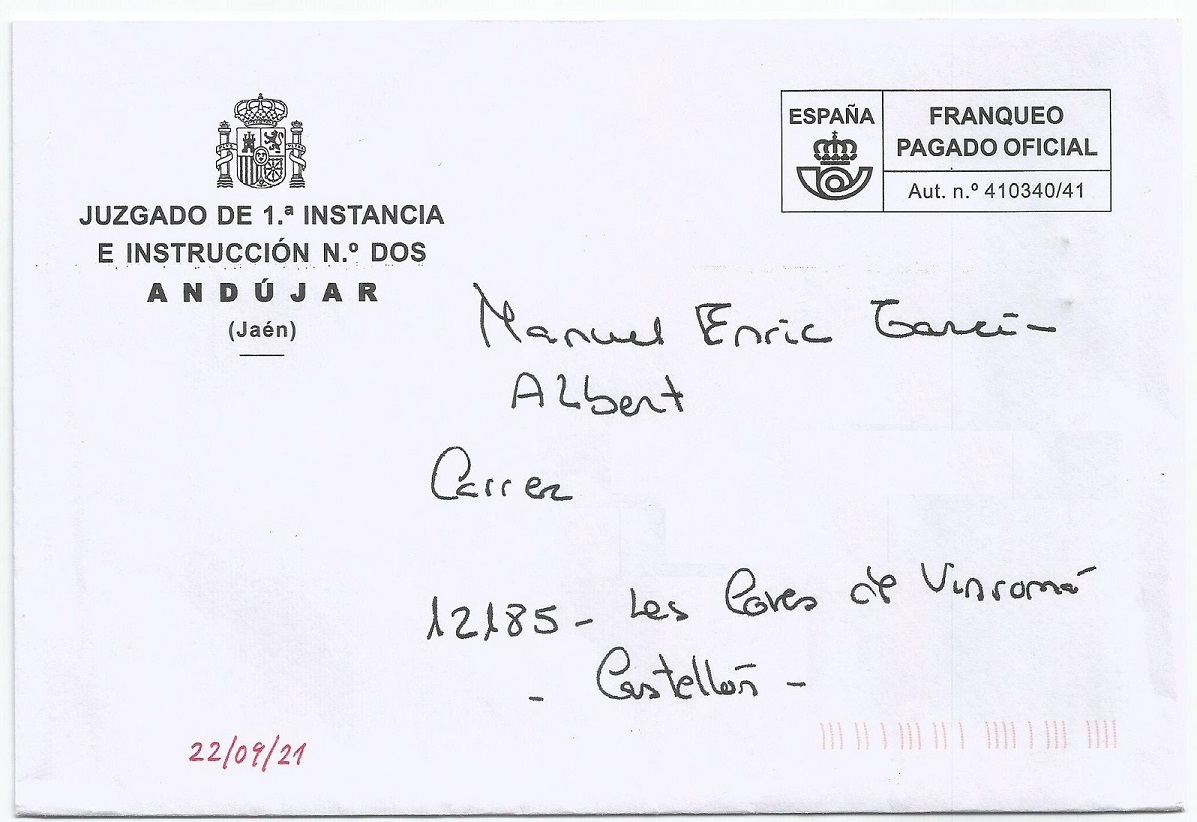 JUZGADO DE 1.ª INSTANCIA
E INSTRUCCIÓN N.º DOS
ANDÚJAR
(Jaén)
ESPAÑA
FRANQUEO
PAGADO OFICIAL
Aut. n.º 410340/41
Manuel Enric García
Albert
Carrer
12185 - Les Coves de Vinromá
- Castellón -
22/09/21